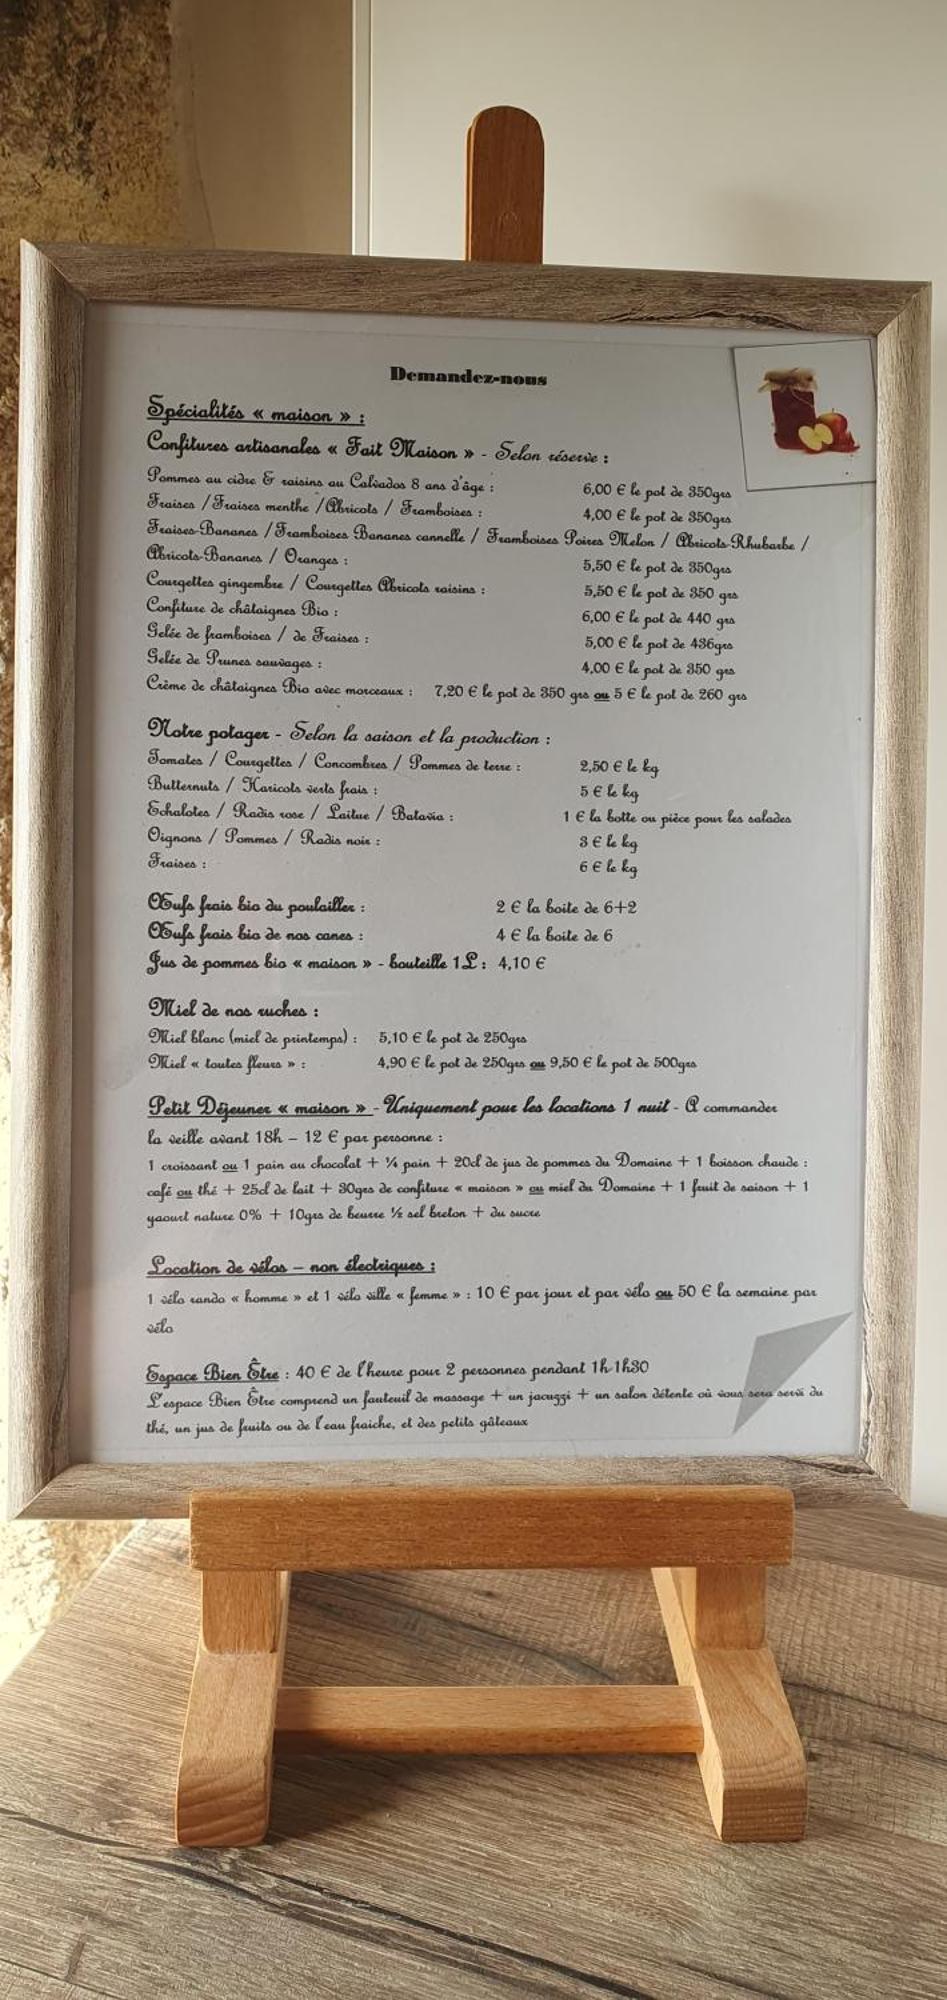 Demandez-nous
Spécialités « maison » :
Confitures artisanales « Fait Maison » - Selon réserve :
Pommes au cidre & raisins au Calvados 8 ans d'âge : 6,00 € le pot de 350grs
Fraises /Fraises menthe /Abricots / Framboises : 4,00 € le pot de 350grs
Fraises-Bananes /Framboises Bananes cannelle / Framboises Poires Melon / Abricots-Rhubarbe /
Abricots-Bananes / Oranges : 5,50 € le pot de 350grs
Courgettes gingembre / Courgettes Abricots raisins : 5,50 € le pot de 350 grs
Confiture de châtaignes Bio : 6,00 € le pot de 440 grs
Gelée de framboises / de Fraises : 5,00 € le pot de 436grs
Gelée de Prunes sauvages : 4,00 € le pot de 350 grs
Crème de châtaignes Bio avec morceaux : 7,20 € le pot de 350 grs ou 5 € le pot de 260 grs
Notre potager - Selon la saison et la production :
Tomates / Courgettes / Concombres / Pommes de terre : 2,50 € le kg
Butternuts / Haricots verts frais : 5 € le kg
Echalotes / Radis rose / Laitue / Batavia : 1 € la botte ou pièce pour les salades
Oignons / Pommes / Radis noir : 3 € le kg
Fraises : 6 € le kg
Œufs frais bio du poulailler : 2 € la boite de 6+2
Œufs frais bio de nos canes : 4 € la boite de 6
Jus de pommes bio « maison » - bouteille 1L : 4,10 €
Miel de nos ruches :
Miel blanc (miel de printemps) : 5,10 € le pot de 250grs
Miel « toutes fleurs » : 4,90 € le pot de 250grs ou 9,50 € le pot de 500grs
Petit Déjeuner « maison » - Uniquement pour les locations 1 nuit - A commander
la veille avant 18h – 12 € par personne :
1 croissant ou 1 pain au chocolat + ¼ pain + 20cl de jus de pommes du Domaine + 1 boisson chaude :
café ou thé + 25cl de lait + 30grs de confiture « maison » ou miel du Domaine + 1 fruit de saison + 1
yaourt nature 0% + 10grs de beurre ½ sel breton + du sucre
Location de vélos – non électriques :
1 vélo rando « homme » et 1 vélo ville « femme » : 10 € par jour et par vélo ou 50 € la semaine par
vélo
Espace Bien Être : 40 € de l'heure pour 2 personnes pendant 1h-1h30
L'espace Bien Être comprend un fauteuil de massage + un jacuzzi + un salon détente où vous sera servi du
thé, un jus de fruits ou de l'eau fraiche, et des petits gâteaux